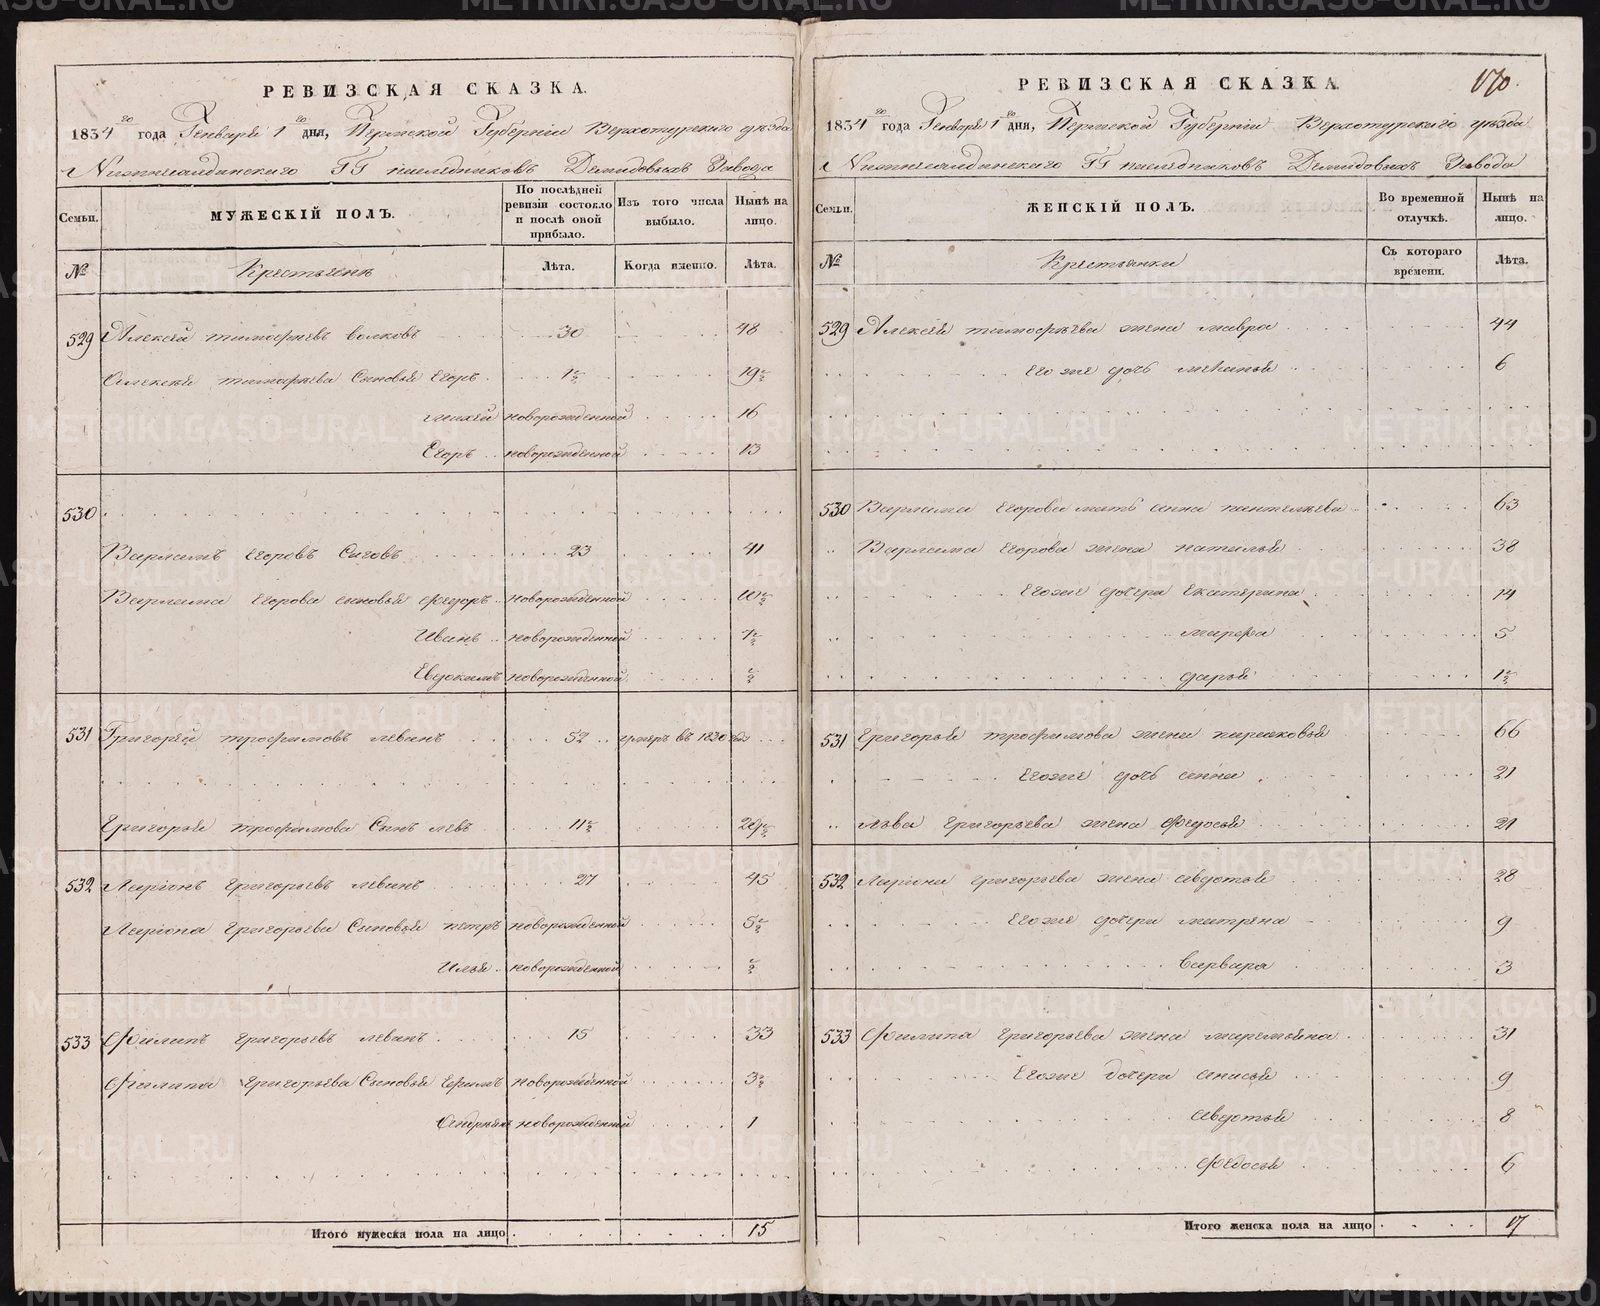 РЕВИЗСКАЯ СКАЗКА.
1834го года Генваря 1го дня, Пермской Губерніи Верхотурскаго уѣзда
Нижнесалдинскаго ГГ наслѣдниковъ Демидовыхъ Завода
Семьи.
МУЖЕСКІЙ ПОЛЪ.
По послѣдней ревизіи состояло и послѣ оной прибыло.
Изъ того числа выбыло.
Нынѣ на лицо.
№
Крестьянъ
Лѣта.
Когда именно.
Лѣта.
529 Алексей тимофеевъ волковъ 30 48
Алексея тимофеева Сыновья Егоръ 1½ 19½
михей новорожденной 16
Егоръ новорожденной 13
530
Варламъ Егоровъ Сиговъ 23 41
Варлама Егорова сыновья Федоръ новорожденной 10½
Иванъ новорожденной
Евдокимъ новорожденной ½
531 Григорей трофимовъ леванъ 52 умеръ въ 1830
Григорья трофимова Сынъ левъ 11½ 29½
532 Ларіонъ григорьевъ леванъ 27 45
Ларіона григорьева Сыновья петръ новорожденной 5½
Илья новорожденной ½
533 Филипъ григорьевъ леванъ 15 33
Филипа григорьева Сыновья Ефимъ новорожденной 3½
Андреянъ новорожденной 1
Итого мужеска пола на лицо 15
170.
РЕВИЗСКАЯ СКАЗКА.
1834го года Генваря 1го дня, Пермской Губерніи Верхотурскаго уѣзда
Нижнесалдинскаго ГГ наслѣдниковъ Демидовыхъ Завода
Семьи.
ЖЕНСКІЙ ПОЛЪ.
Во временной отлучкѣ.
Нынѣ на лицо.
№
Крестьянки
Съ котораго времени.
Лѣта.
529 Алексея тимофеева жена мавра 44
Его же дочь меланья 6
530 Варлама Егорова мать анна пантелеева 63
Варлама Егорова жена наталья 38
Его же дочери Екатерина 14
марфа 5
дарья 1½
531 Григорья трофимова жена парасковья 66
Его же дочь анна 21
льва григорьева жена Федосья 21
532 Ларіона григорьева жена авдотья 28
Его же дочери матрена 9
варвара 3
533 Филипа григорьева жена маремьяна 31
Его же дочери анисья 9
авдотья 8
Федосья 6
Итого женска пола на лицо 17
METRIKI.GASO-URAL.RU